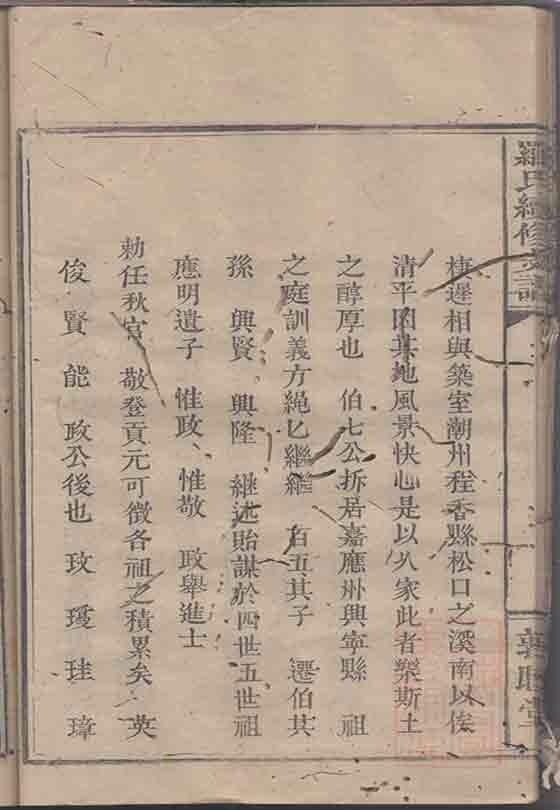 羅氏續修支譜
棲遲相與築室潮州程香縣松口之溪南以俟
清平因其地風景快心是以久家此者樂斯土
之醇厚也 伯七公拆居嘉應州興寧縣 祖
之庭訓義方繩乙繼繼 百五其子 遷伯其
孫 興賢 興隆 継述貽謀於四世五世祖
應明遺子 惟政、惟敬 政舉進士
勅任秋官 敬登貢元可徵各祖之積累矣 英
俊 賢 能 政公後也 玫 瑗 珪 璋
堂